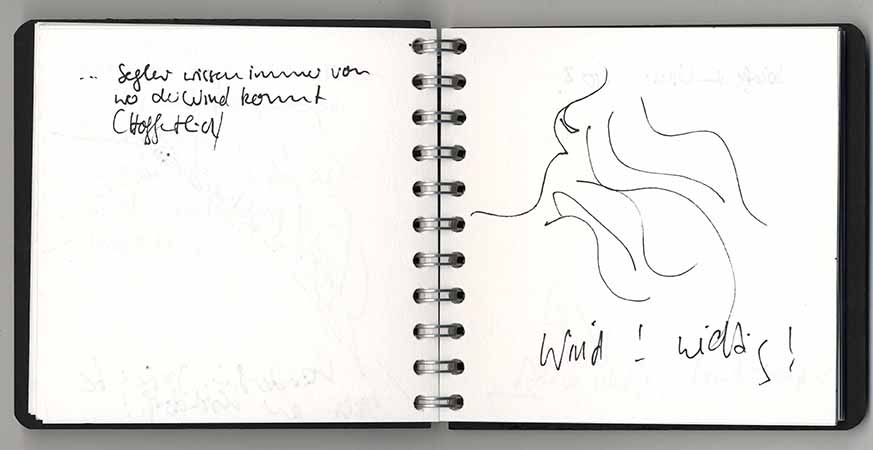 ... Segler wissen immer von
wo der Wind kommt
(Hoffentlich)
Wind! wichtig!